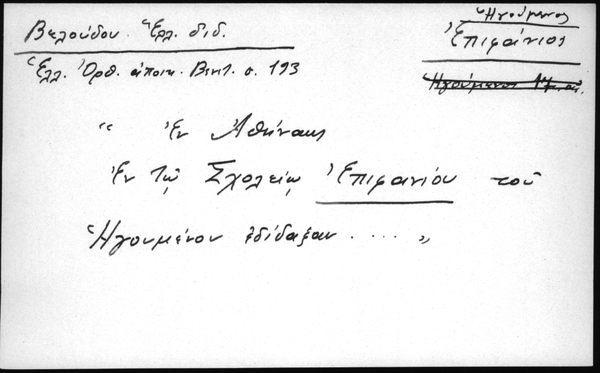 Βελούδου. Ἑλλ. διδ.
Ἑλλ. Ὀρθ. ἀποικ. Βενετ. σ. 193
Ἡγούμενος
Ἐπιφάνιος
Ἡγούμενος
“ Ἐν Ἀθήναις
Ἐν τῷ Σχολείῳ Ἐπιφανίου τοῦ
Ἡγουμένου ἐδίδαξαν ..... „